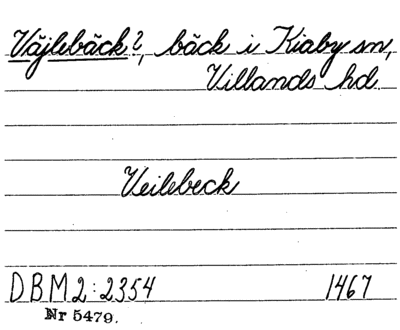 Väjlebäck?, bäck i Kiaby sn,
Villands hd.
Veilebeck
DBM2:2354 1467
Nr 5479.